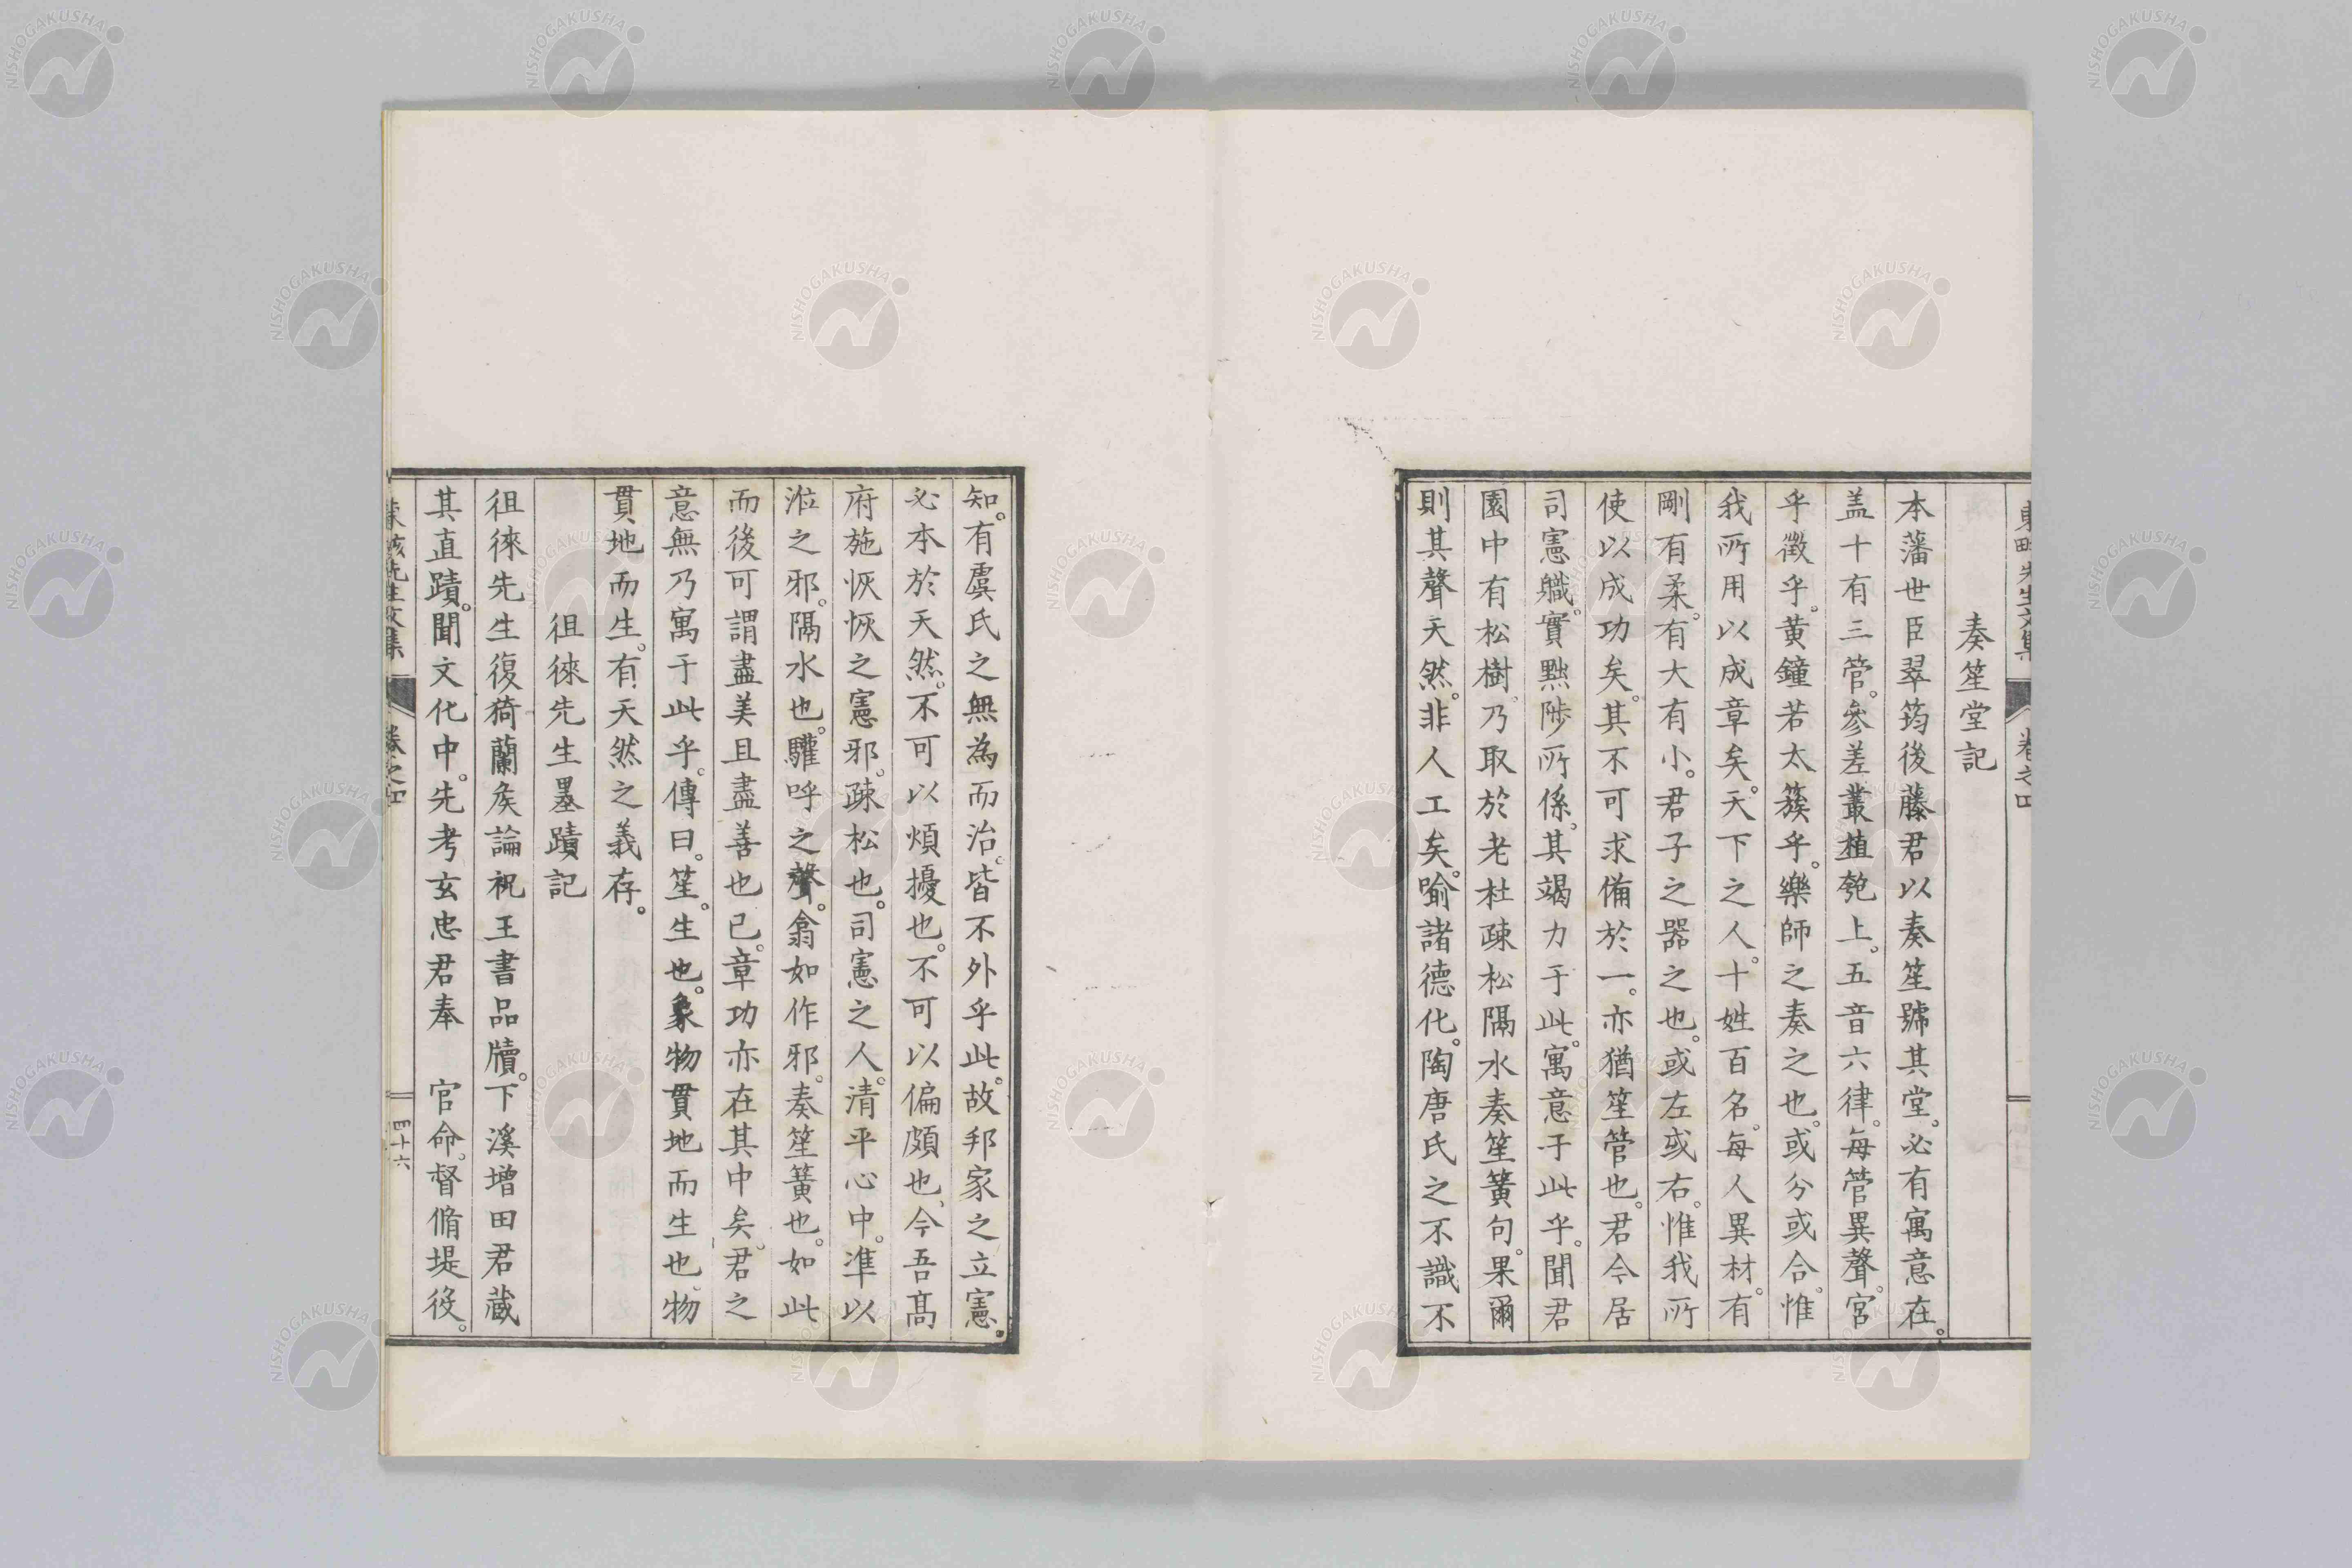 奏笙堂記
本藩世臣翠筠後藤君以奏笙號其堂。必有寓意在。
盖十有三管。參差叢植匏上。五音六律。每管異聲。宮
乎徵乎。黃鐘若太簇乎。樂師之奏之也。或分或合。惟
我所用以成章矣。天下之人。十姓百名。每人異材。有
剛有柔。有大有小。君子之器之也。或左或右。惟我所
使以成功矣。其不可求備於一。亦猶笙管也。君今居
司憲職。實黜陟所係。其竭力于此。寓意于此乎。聞君
園中有松樹。乃取於老杜疎松隔水奏笙簧句。果爾
則其聲天然。非人工矣。喻諸德化。陶唐氏之不識不
知。有虞氏之無為而治。皆不外乎此。故邦家之立憲。
必本於天然。不可以煩擾也。不可以偏頗也。今吾高
府施恢恢之憲邪。疎松也。司憲之人。清平心中。準以
涖之邪。隔水也。驩呼之聲。翕如作邪。奏笙簧也。如此
而後可謂盡美且盡善也已。章功亦在其中矣。君之
意無乃寓于此乎。傳曰。笙。生也。象物貫地而生也。物
貫地而生。有天然之義存。
徂徠先生墨蹟記
徂徠先生復猗蘭矦論祝王書品牘。下溪增田君藏
其直蹟。聞文化中。先考玄忠君奉　官命。督脩堤役。
四十六
NISHOGAKUSHA